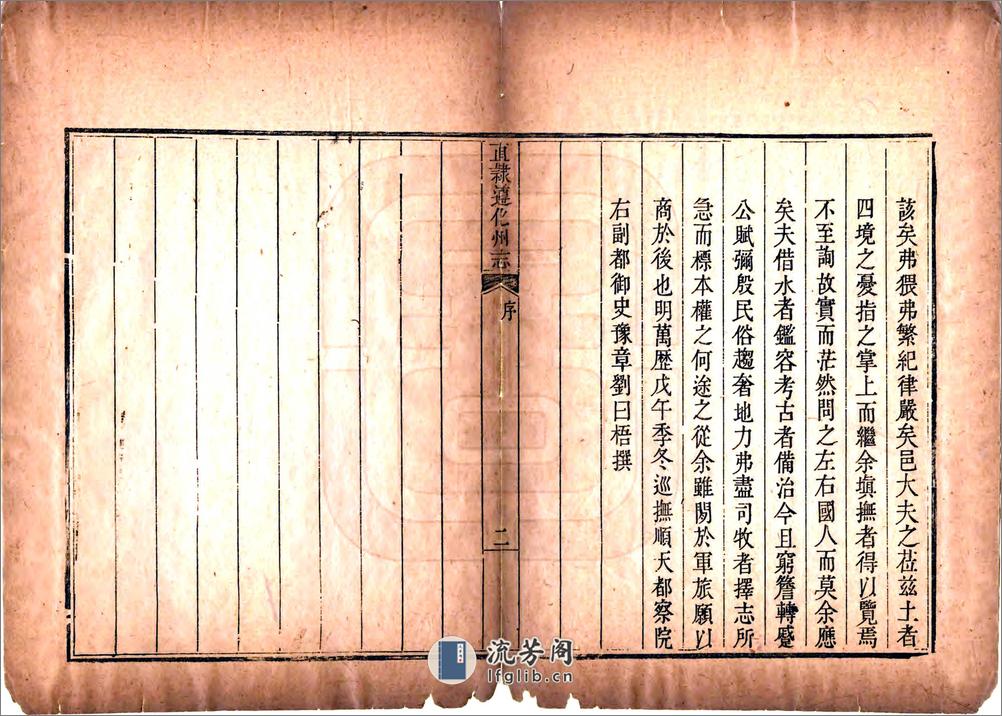 該矣弗猥弗繁紀律嚴矣邑大夫之蒞茲土者
四境之憂指之掌上而繼余塡撫者得以覽焉
不至詢故實而茫然問之左右國人而莫余應
矣夫借水者鑑容考古者備治今且窮簷轉蹙
公賦彌殷民俗趨奢地力弗盡司牧者擇志所
急而標本權之何途之從余雖閑於軍旅願以
商於後也明萬歷戊午季冬巡撫順天都察院
右副都御史豫章劉曰梧撰
直隷遵化州志
序
二
流芳阁
lfglib.cn